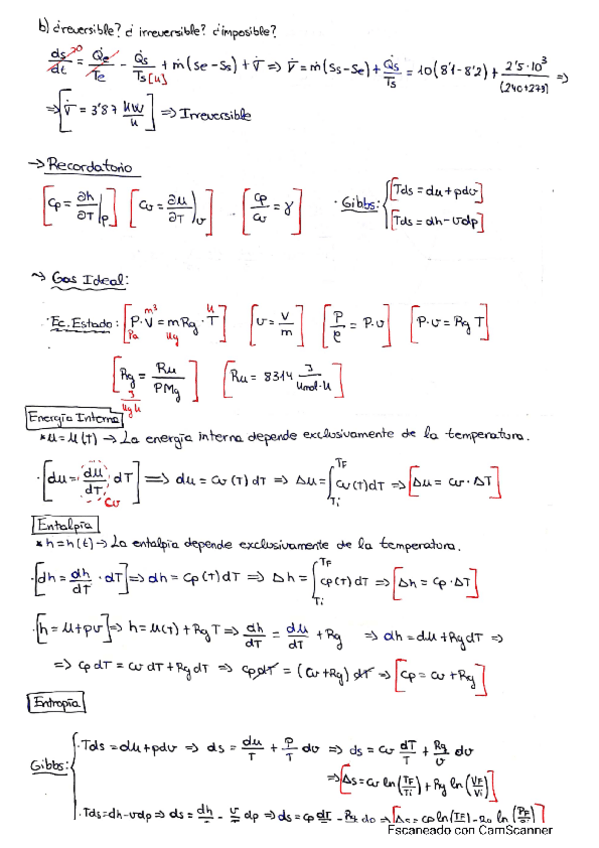 b) ¿reversible? ¿irreversible? ¿imposible?
ds/dt = Q̇e/Te - Q̇s/Ts[K] + ṁ(Se-Ss) + σ̇ => σ̇ = ṁ(Ss-Se) + Q̇s/Ts = 10(8'1-8'2) + 2'5·10³/(240+273) =>
=> [σ̇ = 3'87 kW/K] => Irreversible
→ Recordatorio
[Cp = ∂h/∂T)p] [Cv = ∂u/∂T)v] · [Cp/Cv = γ] · Gibbs: { [Tds = du + pdv]
[Tds = dh - vdp]
~> Gas Ideal:
· Ec. Estado: [P·V = mRg·T] [v = V/m] [P/ρ = P·v] [P·v = Rg T]
Pa m³ Kg K
[Rg = Ru/PMg] [Ru = 8314 J/Kmol·K]
J/Kg K
Energía Interna
* u = u(T) → La energía interna depende exclusivamente de la temperatura.
· [du = du/dT · dT] => du = Cv(T) dT => Δu = ∫ Ti TF Cv(T) dT => [Δu = Cv · ΔT]
Cv
Entalpía
* h = h(t) → La entalpía depende exclusivamente de la temperatura.
· [dh = dh/dT · dT] => dh = Cp(T) dT => Δh = ∫ Ti TF Cp(T) dT => [Δh = Cp · ΔT]
· [h = u + pv] => h = u(T) + Rg T => dh/dT = du/dT + Rg => dh = du + Rg dT =>
=> Cp dT = Cv dT + Rg dT => Cp dT = (Cv + Rg) dT => [Cp = Cv + Rg]
Entropía
Gibbs: { · Tds = du + pdv => ds = du/T + P/T dv => ds = Cv dT/T + Rg/v dv
=> [Δs = Cv ln(TF/Ti) + Rg ln(VF/Vi)]
· Tds = dh - vdp => ds = dh/T - v/T dp => ds = Cp dT/T - Rg dp => [Δs = Cp ln(TF) - Rg ln(PF/Pi)]
Escaneado con CamScanner